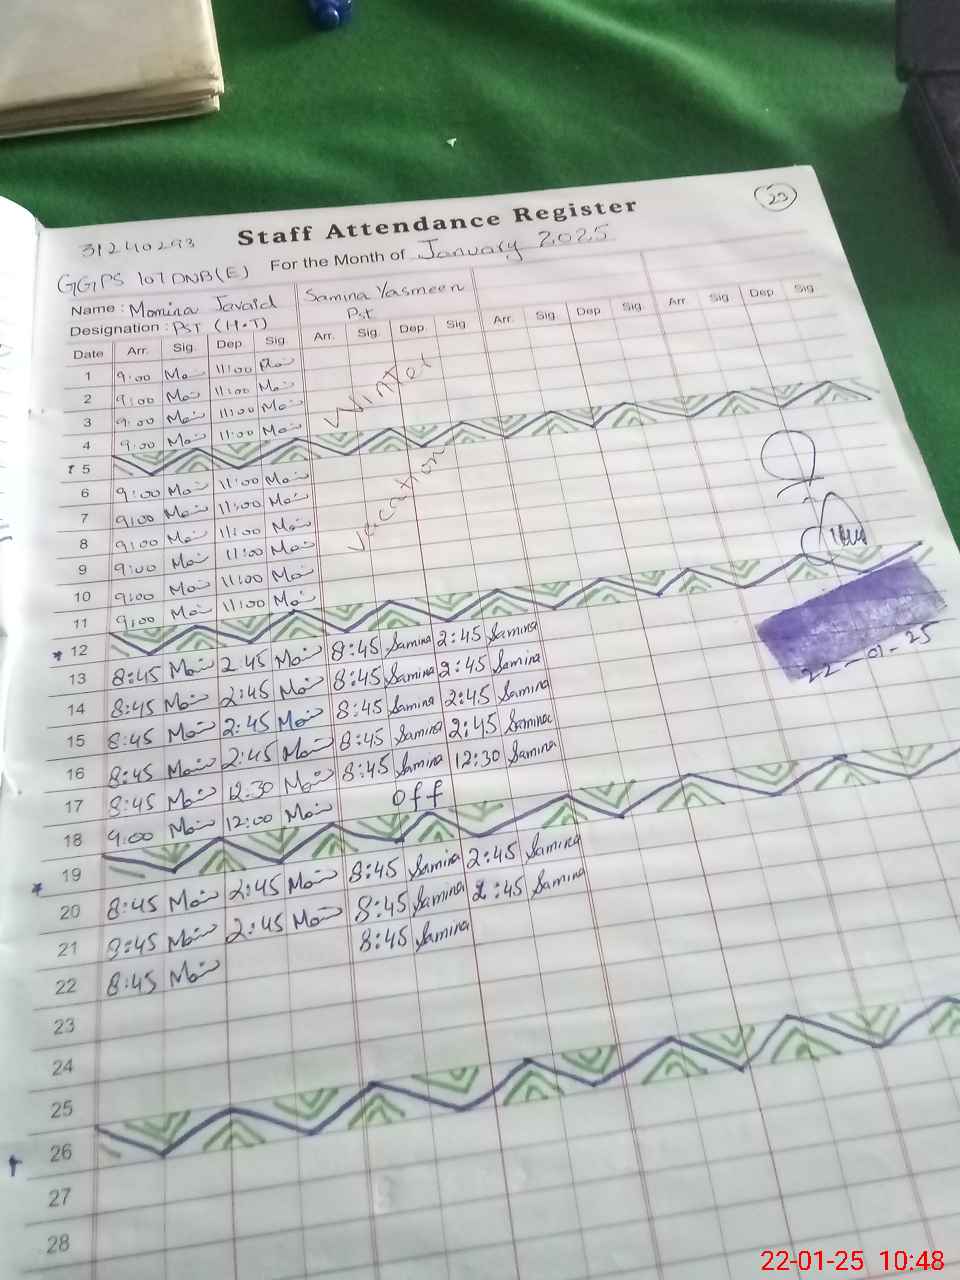 23
31240293
Staff Attendance Register
GGPS 107 DNB(E) For the Month of January 2025
Name : Momina Javaid Samina Yasmeen
Designation : PST (H.T) Pst
Date Arr. Sig. Dep. Sig. Arr. Sig. Dep. Sig Arr. Sig. Dep Sig. Arr. Sig Dep Sig.
Winter
vaccation
1 9:00 11:00
2 9:00 11:00
3 9:00 11:00
4 9:00 11:00
5
6 9:00 11:00
7 9:00 11:00
8 9:00 11:00
9 9:00 11:00
10 9:00 11:00
11 9:00 11:00
12
13 8:45 2:45 8:45 Samina 2:45 Samina
14 8:45 2:45 8:45 Samina 2:45 Samina
15 8:45 2:45 8:45 Samina 2:45 Samina
16 8:45 2:45 8:45 Samina 2:45 Samina
17 8:45 12:30 8:45 Samina 12:30 Samina
18 9:00 12:00 off
19
20 8:45 2:45 8:45 Samina 2:45 Samina
21 8:45 2:45 8:45 Samina 2:45 Samina
22 8:45 8:45 Samina
23
24
25
26
27
28
22-01-25
22-01-25 10:48